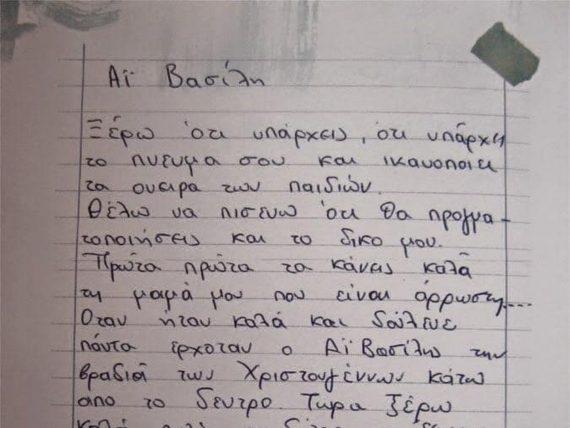 Αϊ Βασίλη
Ξέρω ότι υπάρχεις, ότι υπάρχει
το πνευμα σου και ικανοποιει
τα ονειρα των παιδιών.
Θέλω να πισευω ότι θα πραγμα-
τοποιήσεις και το δικο μου.
Πρώτα πρώτα τα κάνεις καλά
τη μαμά μου που είναι άρρωστη....
Οταν ήταν καλά και δούλευε
πάντα ερχοταν ο Αϊ Βασίλης την
βραδιά των Χριστουγέννων κάτω
απο το δεντρο. Τωρα ξέρω